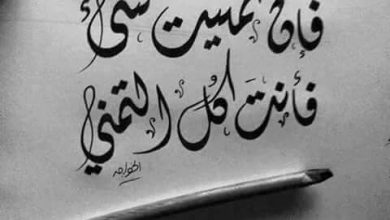 فإن تمنيت شيئا
فأنتَ كُل التمني